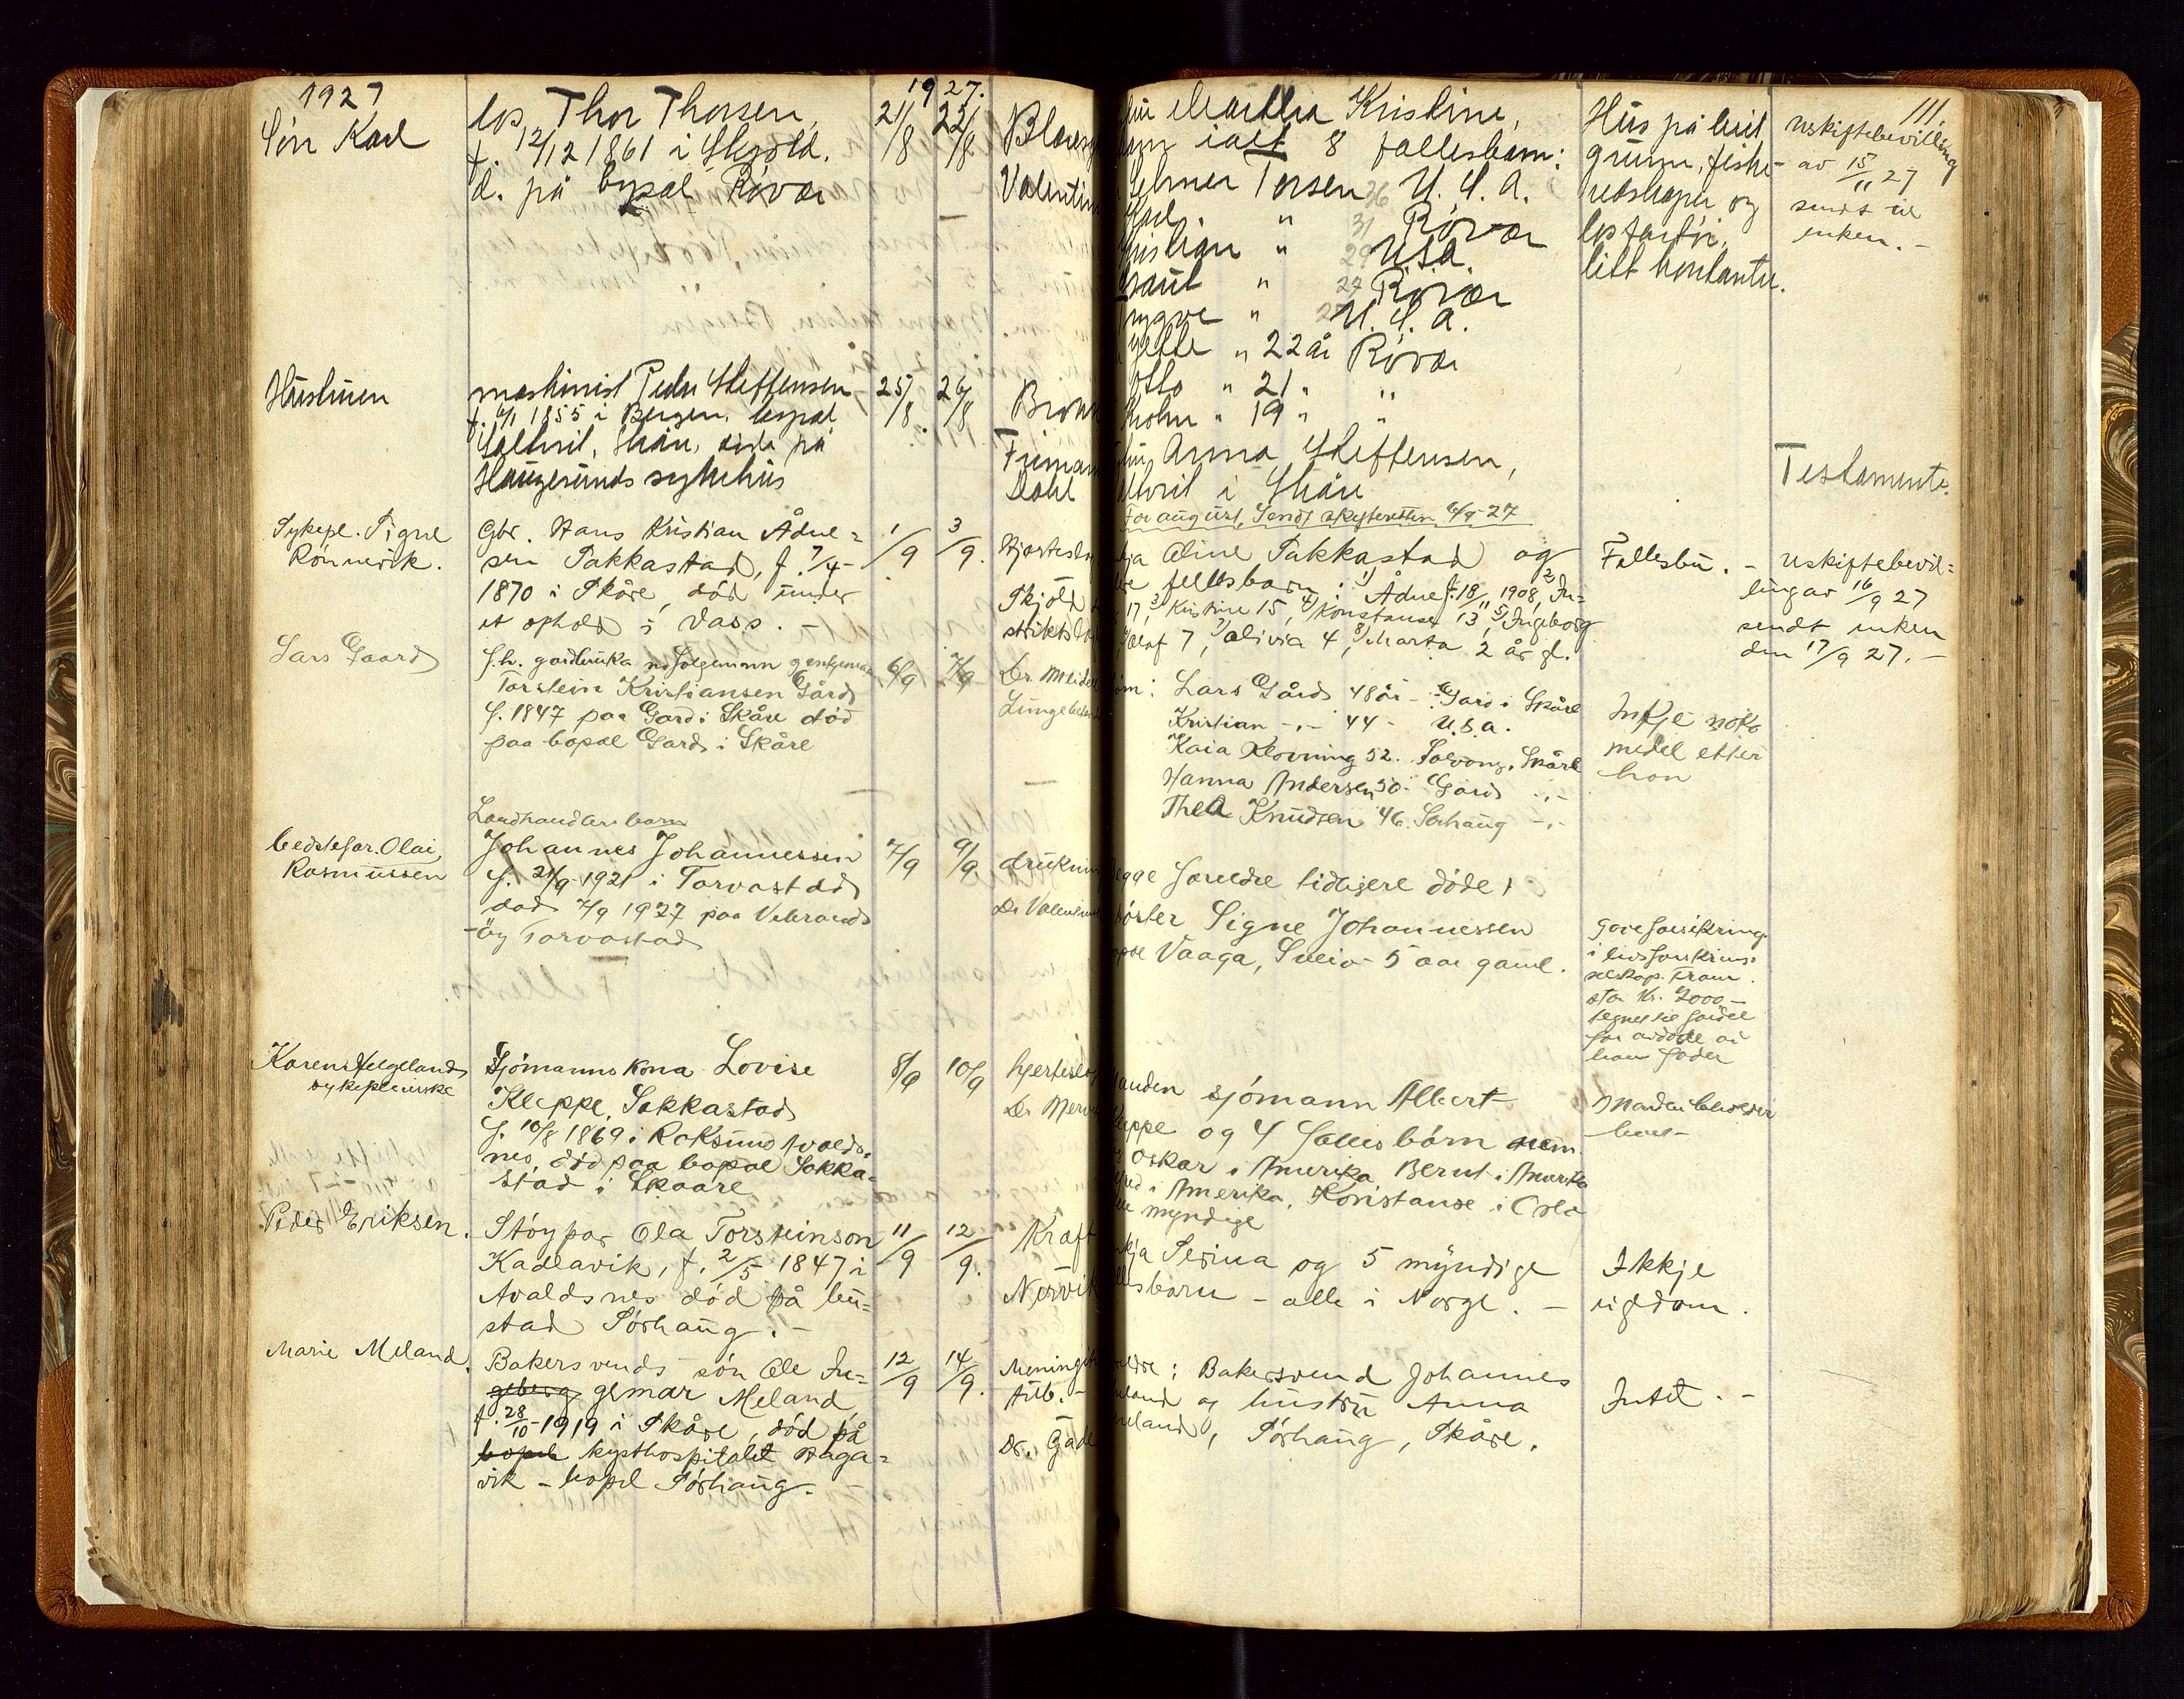 1927
19 27.
111.
Søn Karl
los Thor Thorsen,
f. 12/12 1861 i Skjold.
d. på bopæl Røvær
21/8
22/8
Valentin
Martha Kristine,
ialt 8 fællesbarn:
Torsen 26 U. S. A.
Karl " 31 Røvær
Kristian " 29 USA.
" 27 Røvær
" U. S. A.
" 22 år Røvær
Otto " 21 " "
" 19 " "
Hus på leiet
grunn, fiske-
redskaper og
losfartøi,
litt kontanter.
Uskiftebevilling
av 15/11 27
sendt til
enken. -
Hustruen
maskinist Peder Steffensen
f. 6/1 1855 i Bergen, bopæl
Skåre, døde på
Haugesunds sykehus
25/8
26/8
Dahl
Anna Steffensen,
i Skåre
For august, Sendt skifteretten 6/9-27
Testamente.
Sykepl. Signe
Rønnevik.
Gbr. Hans Kristian Ådne=
sen Sakkastad, f. 7/4-
1870 i Skåre, død under
et ophold i Vass. -
1/9
3/9.
Hjerteslag
Skjold
Aline Sakkastad og
fellesbarn: 1) Ådne f. 18/11 1908, 2) In=
17, 3) Kristine 15, 4) Konstanse 13, 5) Ingeborg
Olaf 7, 7) Olivia 4, 8) Marta 2 år gl.
Fellesbu. -
Uskiftebevil=
ling av 16/9 27
sendt enken
den 17/9 27. -
Lars Gaard
f.h. gardbruka no folgemann
Torstein Kristiansen Gård
f. 1847 paa Gard i Skåre død
paa bopæl Gard i Skåre
6/9
7/9
Dr Meidell
Lars Gård 48 år - Gard i Skåre
Kristian -,- 44 - U.S.A.
Kaia Kløvning 52. Skåre
Hanna Andersen 50 - Gård -,-
Thea Knudsen 46. Sørhaug -,-
Inkje noko
medel etter
han
bedstefar Olai
Rasmussen
Landhandlers barn
Johannes Johannessen
f. 21/9 1921 i Torvastad
død 7/9 1927 paa Vibrands
-øy Torvastad
7/9
9/9
Dr Valentin
foreldre tidligere døde,
Søster Signe Johannessen
Vaaga, Sveio - 5 aar gaml.
i livsforsikrings
selskap. Fram.
stor Kr. 2000 -
hans fader
Karen Helgeland
sykepleierske
Sjømannskona Lovise
Kleppe, Sakkastad
f. 10/8 1869 i Røksund Avalds-
nes, død paa bopæl Sakka-
stad i Skaare
8/9
10/9
hjerteslag
manden sjømann Albert
Kleppe og 4 fellesbørn
Oskar i Amerika, Bernt i Amerika
i Amerika, Konstanse i Oslo
myndige
Manden beholder
buet -
Peder Eriksen.
Støypar Ola Torsteinson
Kadlavik, f. 2/5 1847 i
Avaldsnes død på bu=
stad Sørhaug. -
11/9
12/9.
Kreft
Nervik
Serina og 5 myndige
- alle i Norge. -
Ikkje
eigedom.
Marie Meland.
Bakersvends søn Ole In=
geberg gemar Meland,
f. 28/10-1919 i Skåre, død på
bopæl kysthospitalet Haga=
vik - bopæl Sørhaug. -
12/9
14/9.
Meningit
tub. -
Dr. Gade
Bakersvend Johannes
Meland og hustru Anna
Meland, Sørhaug, Skåre.
Intet. -